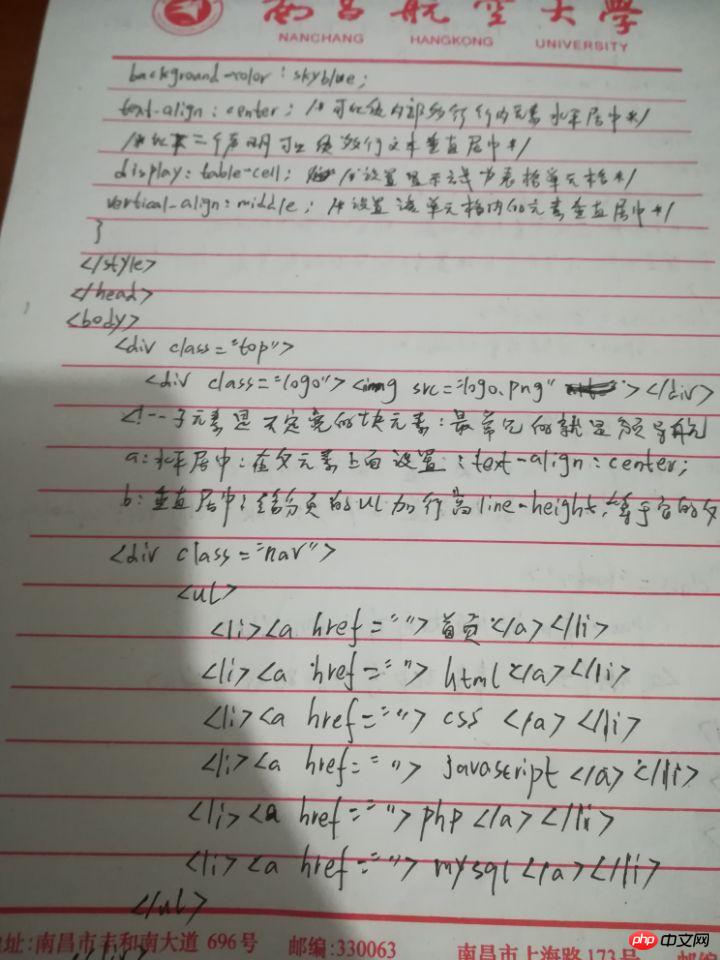 南昌航空大學
NANCHANG HANGKONG UNIVERSITY
background-color : skyblue ;
text-align : center ; /* 可以使内部的行内元素水平居中 */
二个声明可以使多行文本垂直居中 */
display : table-cell ; /* 设置显示方式为表格单元格 */
vertical-align : middle ; /* 设置该单元格内的元素垂直居中 */
}
</style>
</head>
<body>
<div class="top">
<div class="logo"> <img src="logo.png" > </div>
<!-- 子元素是不定宽的块元素 : 最常见的就是分页导航
a : 水平居中 : 在父元素上面设置 : text-align : center ;
b : 垂直居中 : 给分页的ul加行高line-height, 等于它的父
<div class="nav">
<ul>
<li><a href=""> 首页 </a></li>
<li><a href=""> html </a></li>
<li><a href=""> css </a></li>
<li><a href=""> javascript </a></li>
<li><a href=""> php </a></li>
<li><a href=""> mysql </a></li>
</ul>
址:南昌市丰和南大道 696号 邮编:330063 南昌市上海路173号 邮编
php 中文网